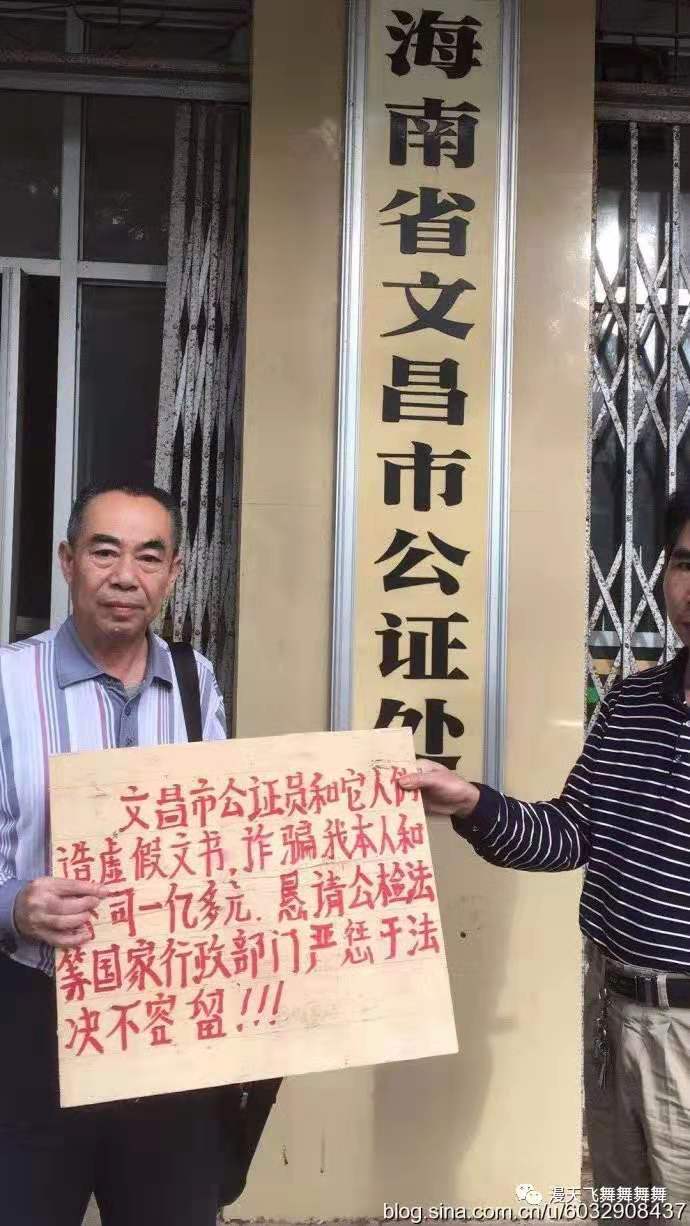 海南省文昌市公证处
文昌市公证员和它人伪
造虚假文书，诈骗我本人和
公司一亿多元．恳请公检法
等国家行政部门严惩于法
决不容留！！！
漫天飞舞舞舞舞
blog.sina.com.cn/u/6032908437